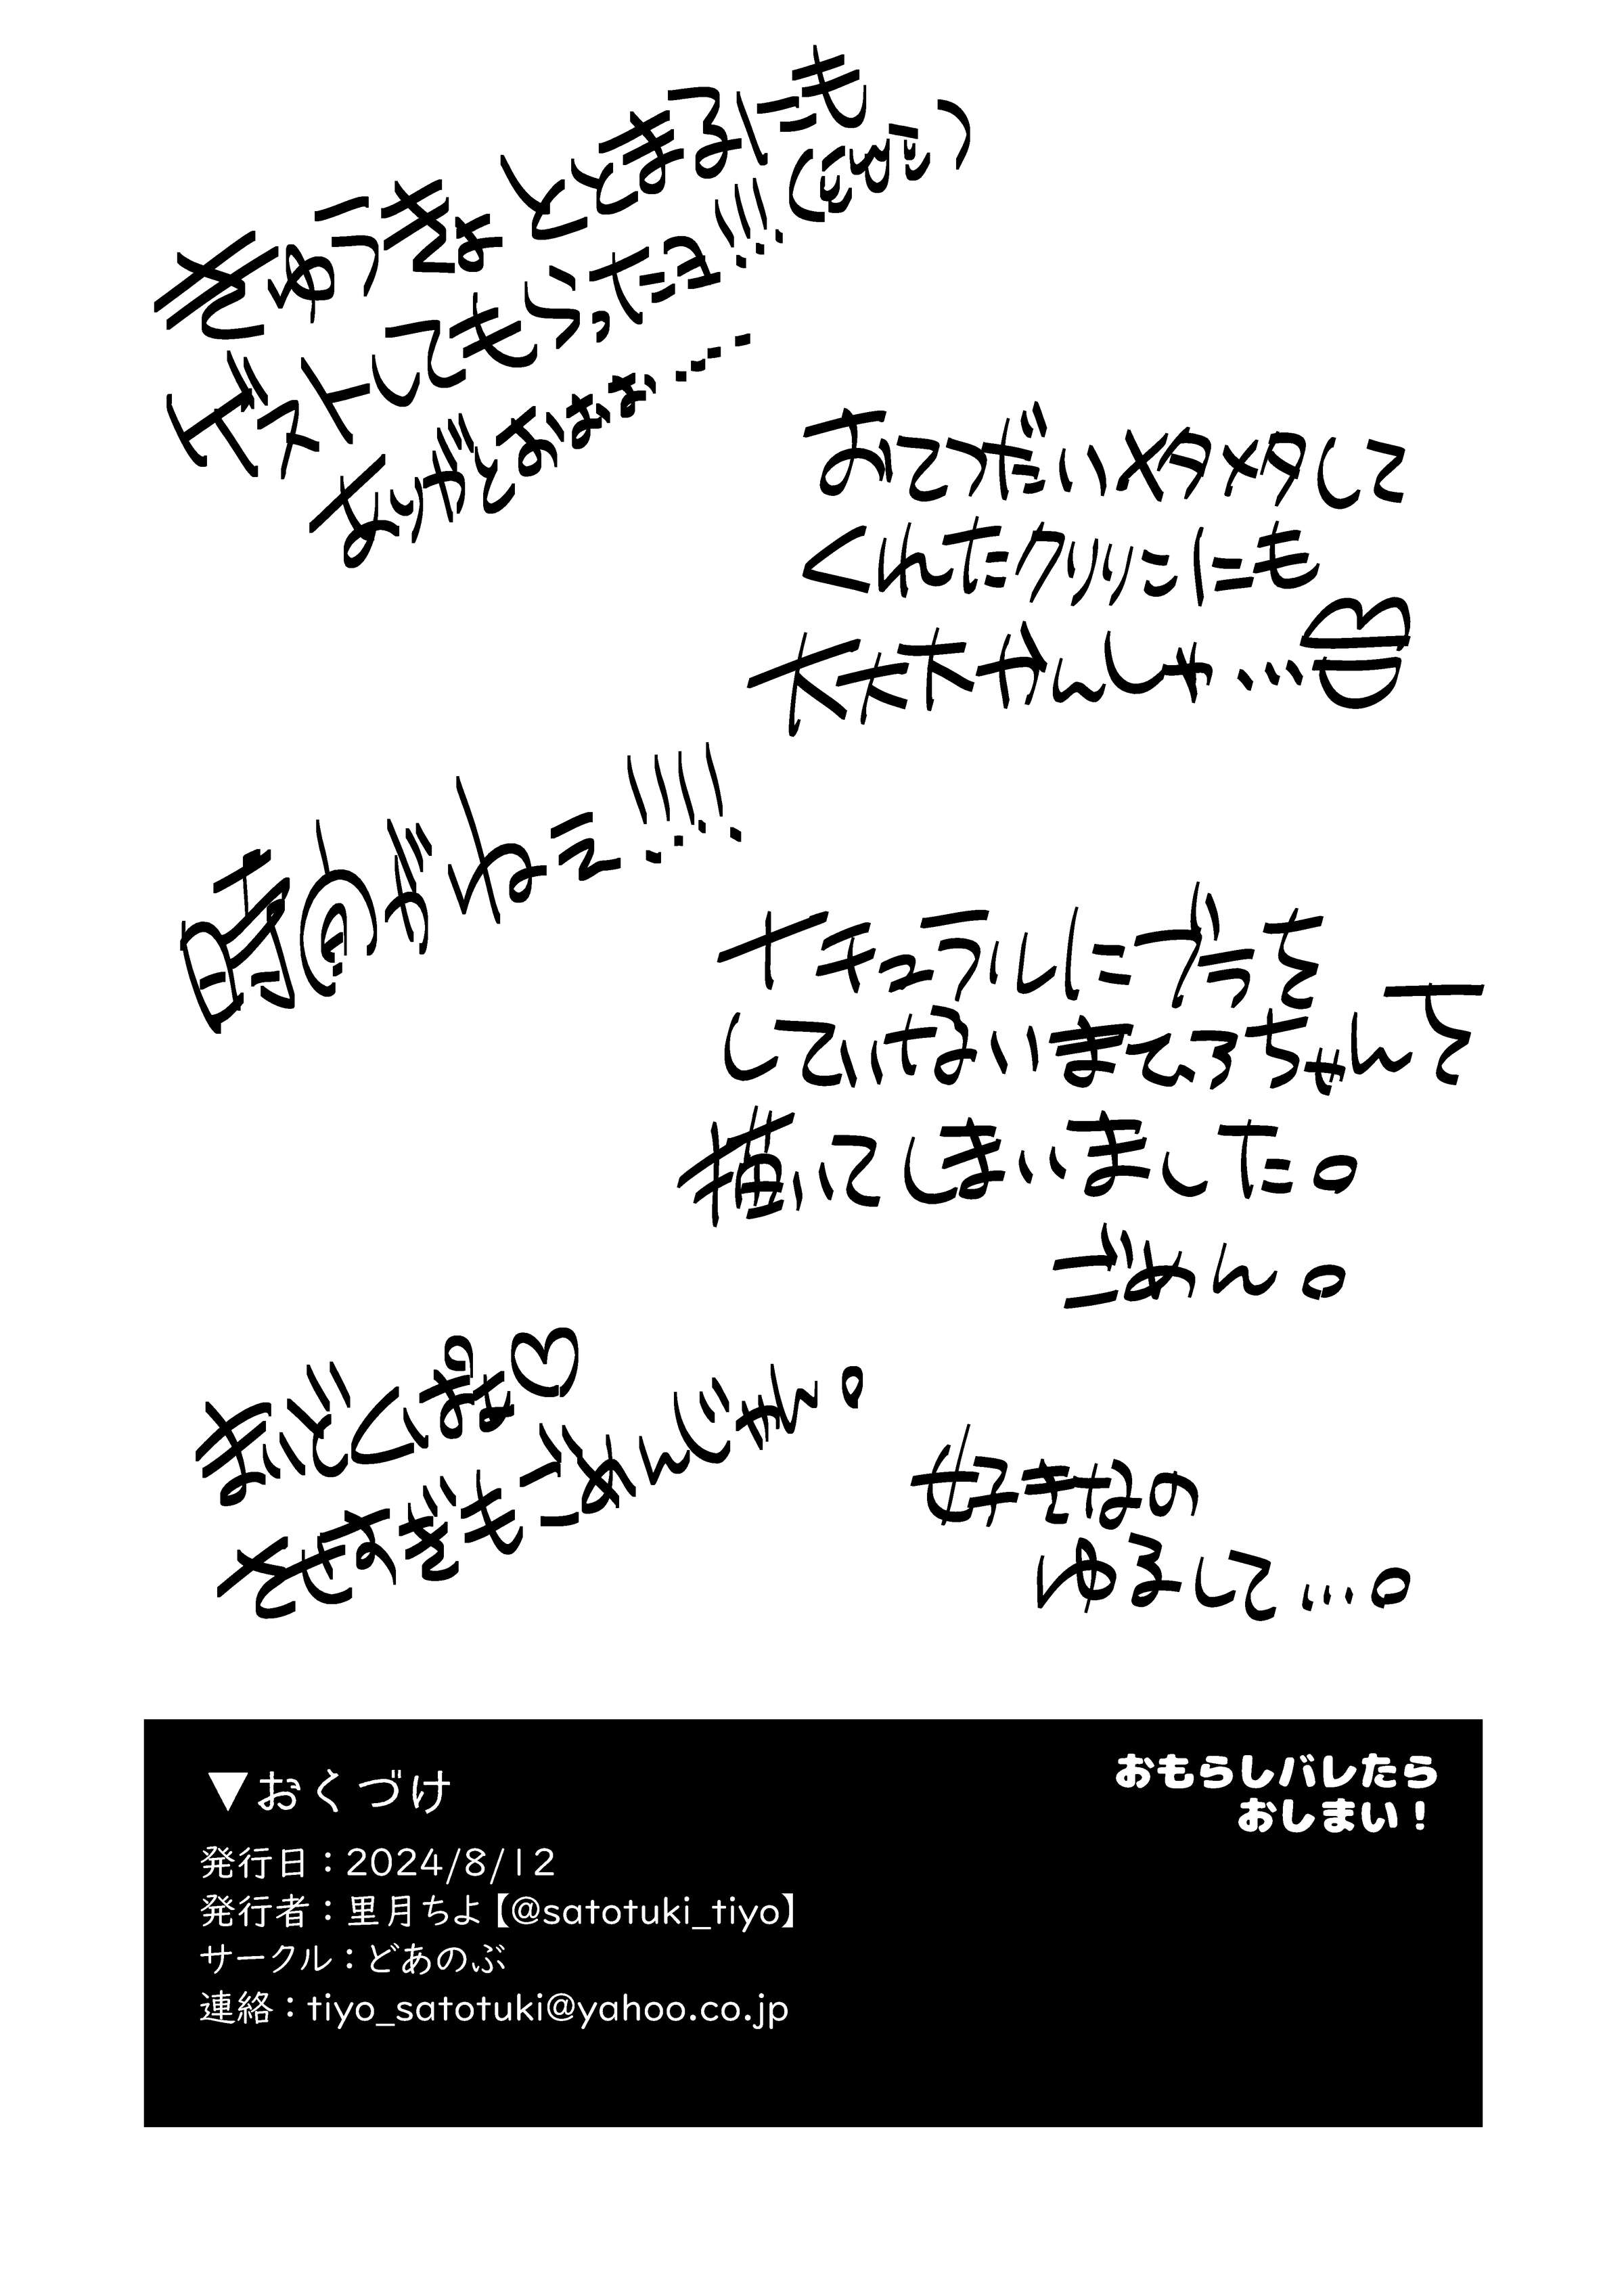 きゅうきょ ととまるにも
ゲストしてもらったョ!!!
ありがとおおおぉ‥‥
おてつだいメタメタして
くれたクリリこにも
大大大かんしゃ…
時間がねェ!!!!
ナチュラルにブラを
していないまひろちゃんて
描いてしまいました。
ごめん。
まいどくぱぁ♡
させすぎもごめんじゃん。
好きなの
ゆるして…。
おもらしバレたら
おしまい!
▼おくづけ
発行日:2024/8/12
発行者:里月ちよ【@satotuki_tiyo】
サークル:どあのぶ
連絡:tiyo_satotuki@yahoo.co.jp